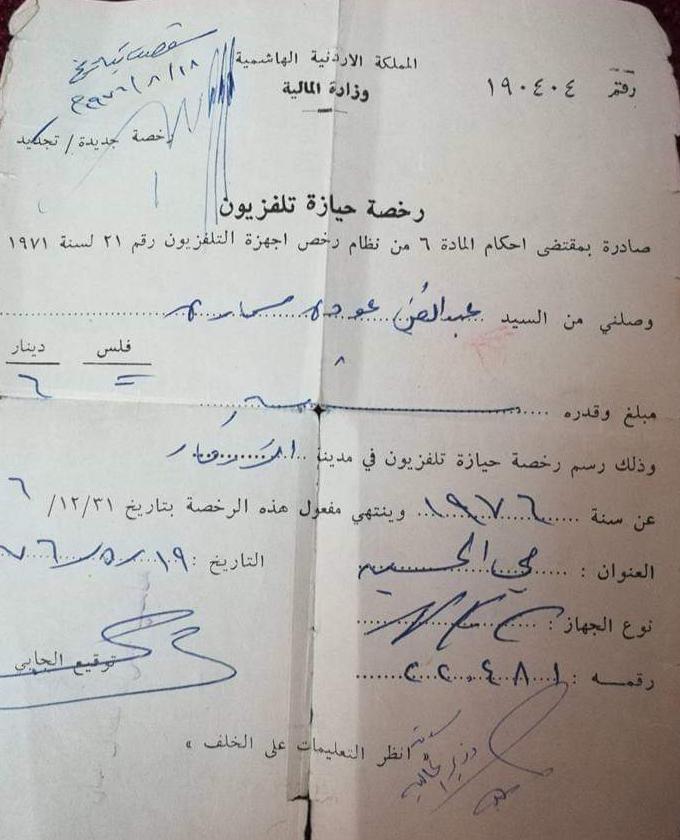 المملكة الاردنية الهاشمية
وزارة المالية
رقم ١٩٠٤٠٤
١٩٧٦/٨/١٨م
رخصة جديدة / تجديد
رخصة حيازة تلفزيون
صادرة بمقتضى احكام المادة ٦ من نظام رخص اجهزة التلفزيون رقم ٢١ لسنة ١٩٧١
وصلني من السيد عوده
فلس دينار
= ٦
مبلغ وقدره
وذلك رسم رخصة حيازة تلفزيون في مدينة الزرقاء
عن سنة ١٩٧٦ وينتهي مفعول هذه الرخصة بتاريخ ١٢/٣١/ ٦
العنوان : حي الحسين
التاريخ : ١٩/٥/٧٦
نوع الجهاز :
توقيع الجابي
رقمه :
انظر التعليمات على الخلف »